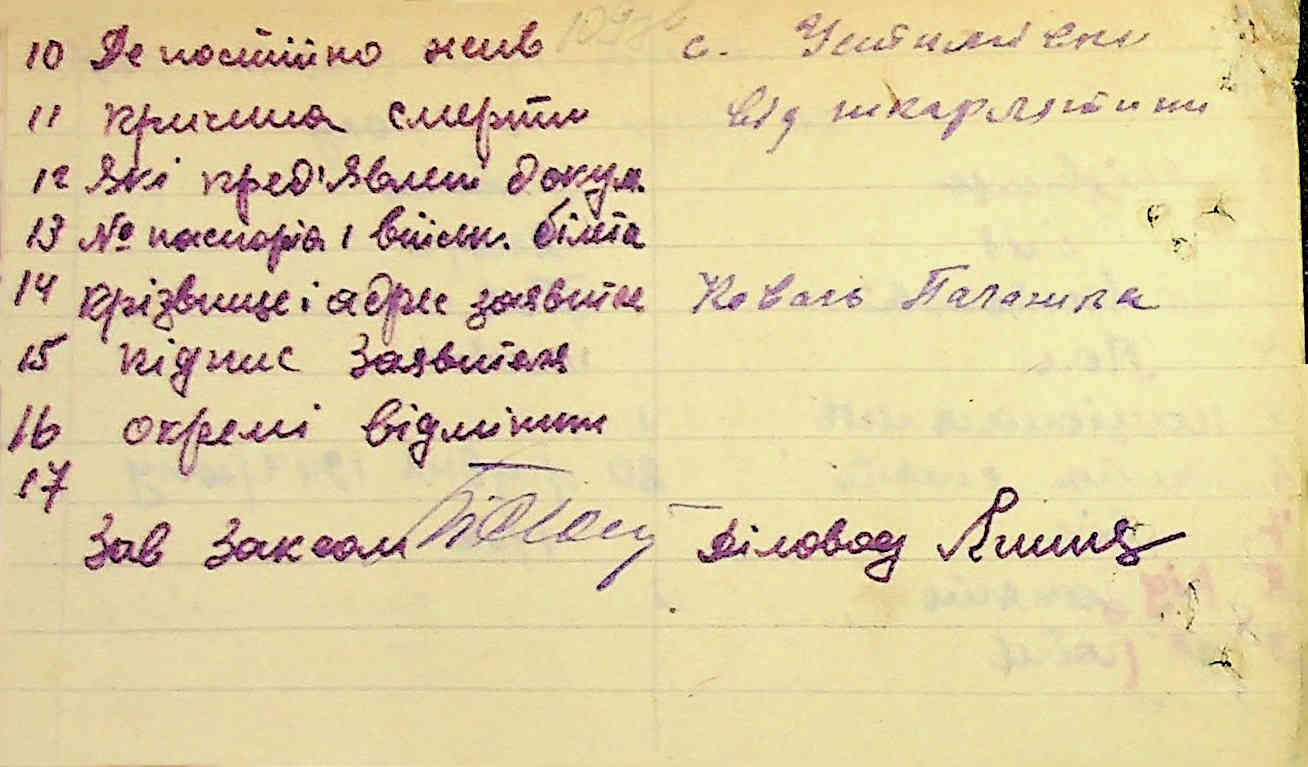 10 Де постійно жив с. Устимівки
11 причина смерти від шкарлятини
12 Які пред'явлені докум.
13 № паспорта і військ. білета
14 прізвище і адрес заявителя Коваль Палашка
15 підпис Заявителя
16 окремі відмітки
17
Зав Загсом Діловод